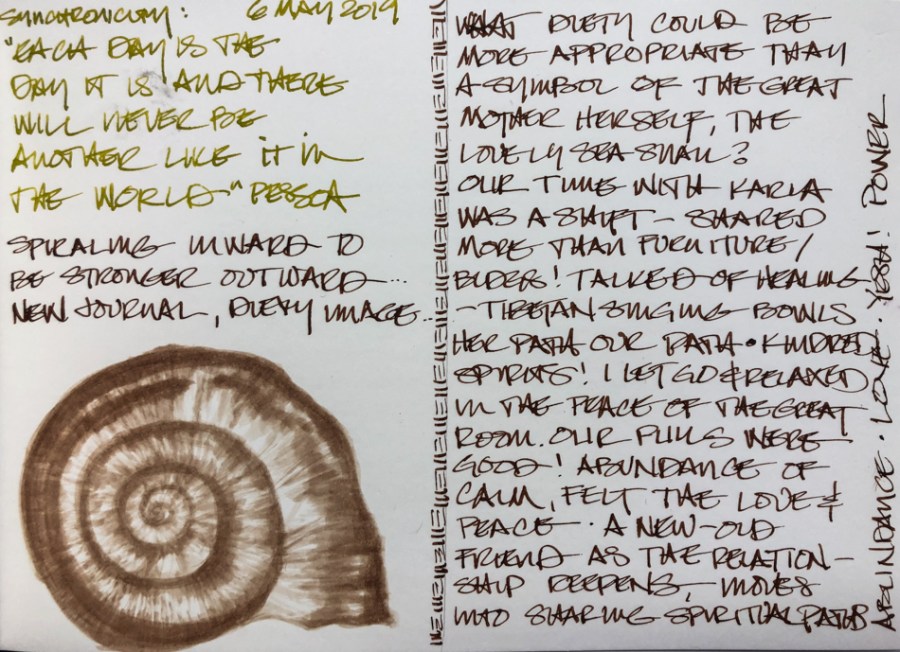 SYNCHRONICITY: 6 MAY 2019
"EACH DAY IS THE
DAY IT IS AND THERE
WILL NEVER BE
ANOTHER LIKE IT IN
THE WORLD" PESSOA
SPIRALING INWARD TO
BE STRONGER OUTWARD...
NEW JOURNAL, DIETY IMAGE...
WHAT DIETY COULD BE
MORE APPROPRIATE THAN
A SYMBOL OF THE GREAT
MOTHER HERSELF, THE
LOVELY SEA SNAIL?
OUR TIME WITH KARLA
WAS A SHIFT - SHARED
MORE THAN FURNITURE/
BLDGS! TALKED OF HEALING
- TIBETAN SINGING BOWLS
HER PATH OUR PATH • KINDRED
SPIRITS! I LET GO & RELAXED
IN THE PEACE OF THE GREAT
ROOM. OUR PULLS WERE
GOOD! ABUNDANCE OF
CALM, FELT THE LOVE &
PEACE · A NEW-OLD
FRIEND AS THE RELATION-
SHIP DEEPENS, MOVES
INTO SHARING SPIRITUAL PATHS
ABUNDANCE · LOVE · YESSA! POWER